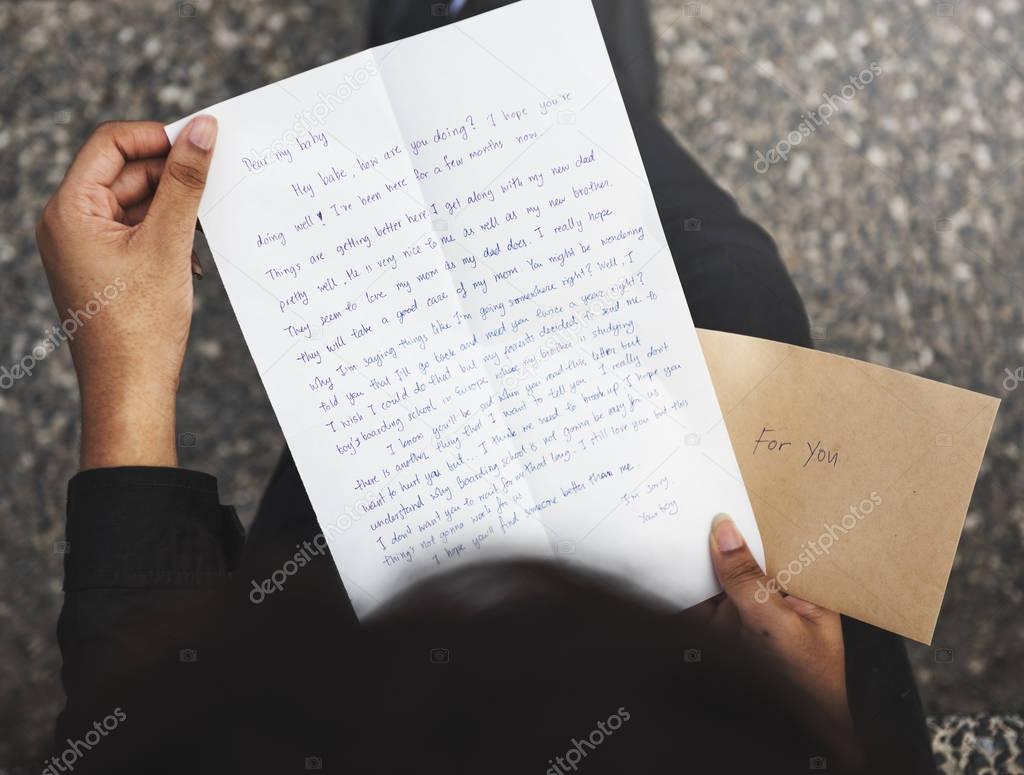 Dear my baby
Hey babe, how are you doing? I hope you're
doing well! I've been here for a few months now.
Things are getting better here. I get along with my new dad
pretty well. He is very nice to me as well as my new brother.
They seem to love my mom as my dad does. I really hope
they will take a good care of my mom. You might be wondering
why I'm saying things like I'm going somewhere right? Well, I
told you that I'll go back and meed you twice a year, right?
I wish I could do that but my parents decided to send me to
boy's boarding school in Europe where my brother is studying
I know you'll be sad when you read this letter but
there is another thing that I want to tell you. I really don't
want to hurt you but... I think we need to break up. I hope you
understand why. Boarding school is not gonna be easy for us
I don't want you to wait for me that long. I still love you but this
thing's not gonna work for us.
I hope you'll find someone better than me.
I'm sorry.
Your boy
For You
depositphotos
depositphotos
depositphotos
depositphotos
depositphotos
depositphotos
depositphotos
depositphotos
depositphotos